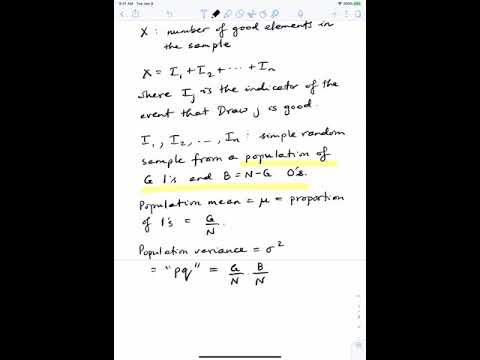 X : number of good elements in
the sample
X = I₁ + I₂ + ··· + Iₙ
where Iⱼ is the indicator of the
event that Draw j is good.
I₁, I₂, ..., Iₙ : simple random
sample from a population of
G 1's and B = N-G 0's.
Population mean = μ = proportion
of 1's = G/N.
Population variance = σ²
= "pq" = G/N · B/N